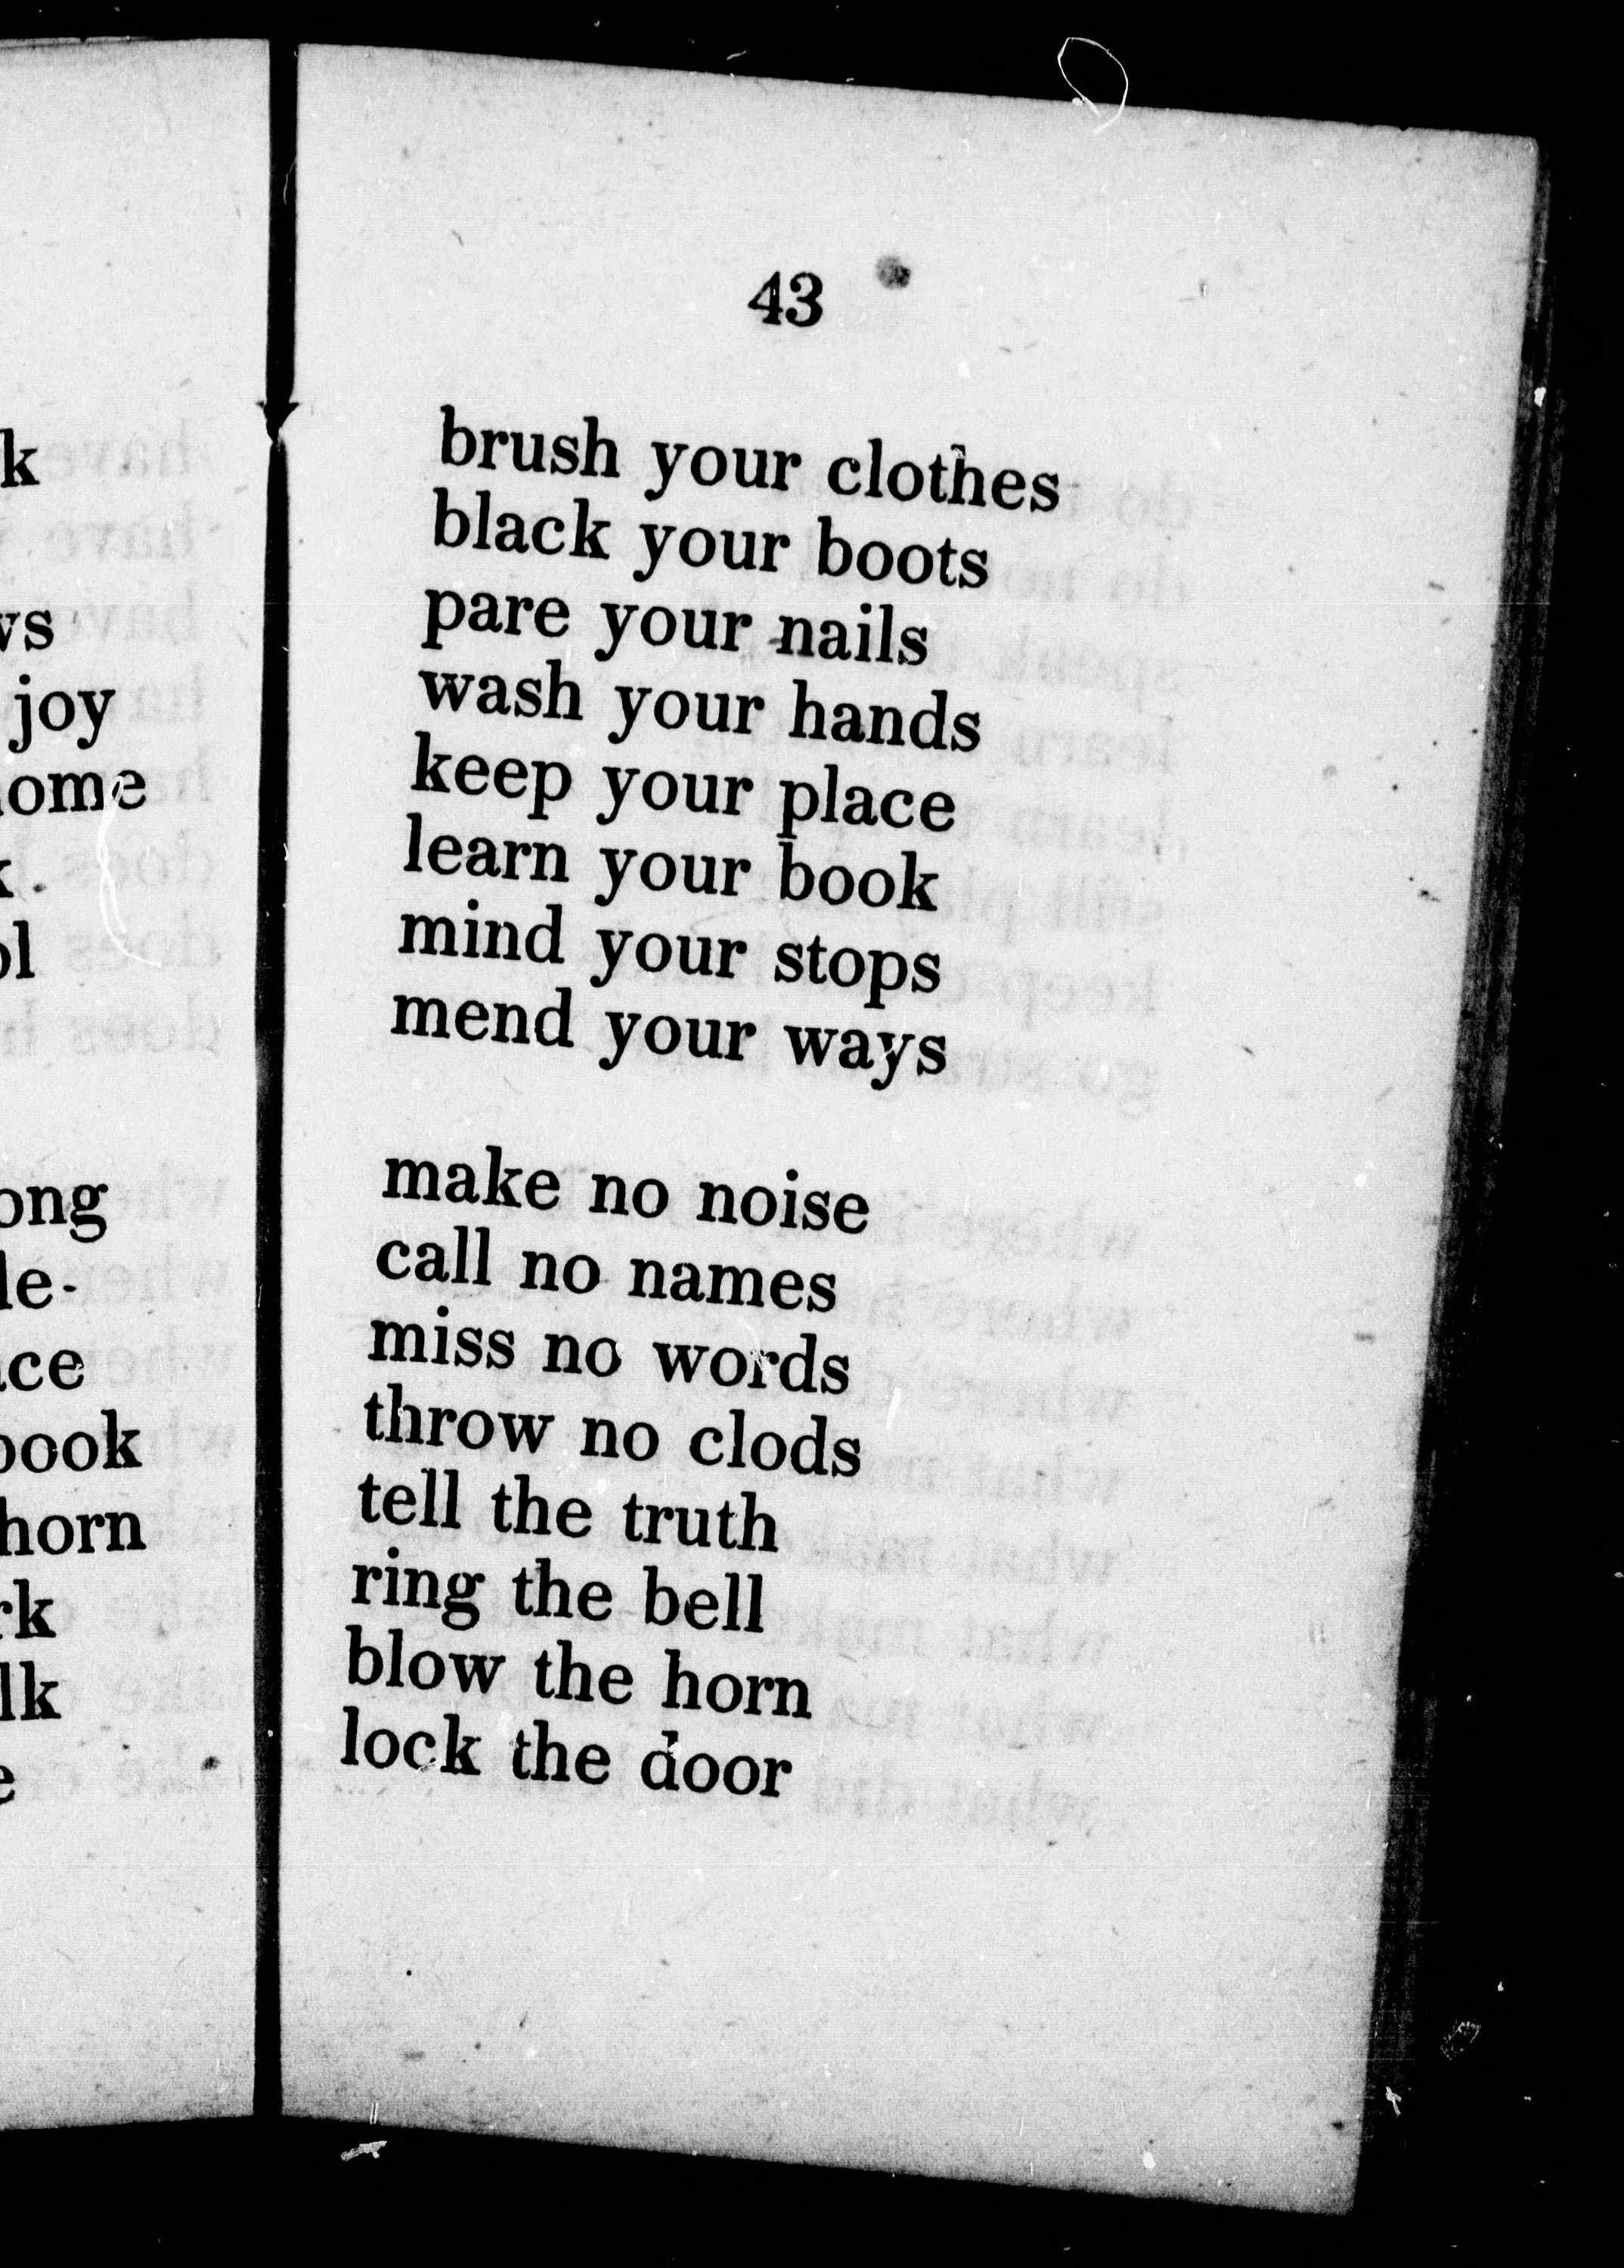 k
ws
joy
home
k
ol
ong
le-
ace
book
horn
rk
lk
e
43
brush your clothes
black your boots
pare your nails
wash your hands
keep your place
learn your book
mind your stops
mend your ways
make no noise
call no names
miss no words
throw no clods
tell the truth
ring the bell
blow the horn
lock the door